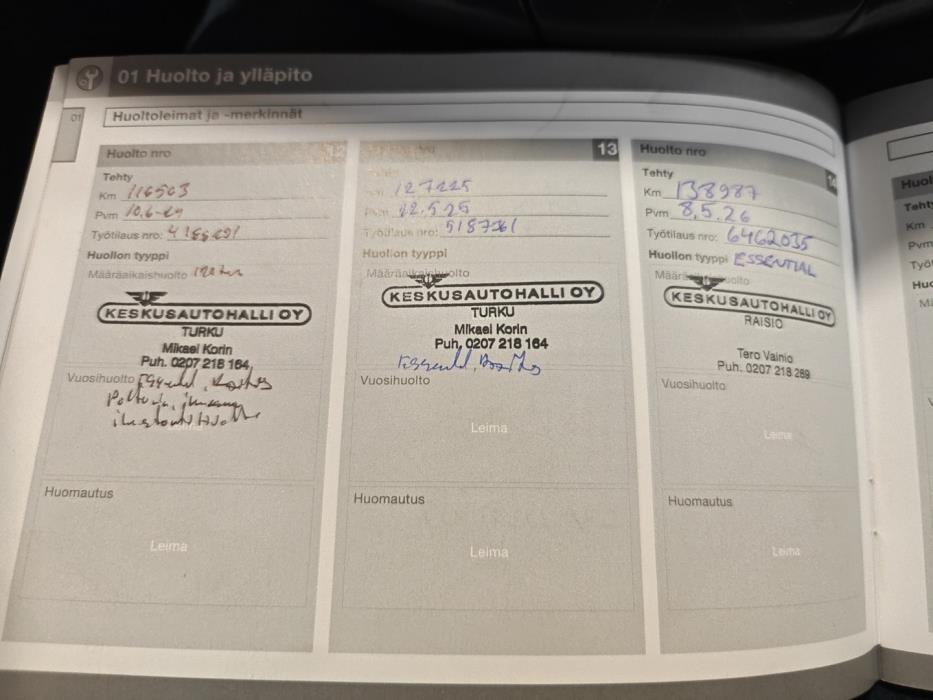 01 Huolto ja ylläpito
01
Huoltoleimat ja -merkinnät
Huolto nro
Tehty
Km 116503
Pvm 10.6-24
Työtilaus nro:
Huollon tyyppi
Määräaikaishuolto
KESKUSAUTOHALLI OY
TURKU
Mikael Korin
Puh. 0207 218 164
Vuosihuolto
Huomautus
Leima
13
127225
12.5.25
Työtilaus nro: 5187361
Huollon tyyppi
Määräaikaishuolto
KESKUSAUTOHALLI OY
TURKU
Mikael Korin
Puh. 0207 218 164
Vuosihuolto
Leima
Huomautus
Leima
Huolto nro
14
Tehty
Km 138987
Pvm 8.5.26
Työtilaus nro: 6462035
Huollon tyyppi ESSENTIAL
KESKUSAUTOHALLI OY
RAISIO
Tero Vainio
Puh. 0207 218 269
Vuosihuolto
Leima
Huomautus
Leima